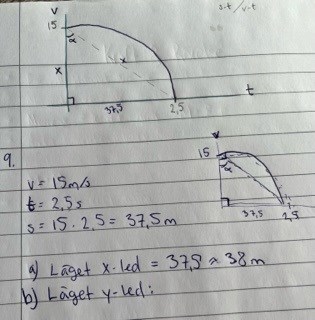 s-t/v-t
v
15
α
x
x
t
37,5
2,5
9.
v
15
α
37,5
2,5
v = 15 m/s
t = 2,5 s
s = 15 · 2,5 = 37,5 m
a) Läget x-led = 37,5 ≈ 38 m
b) Läget y-led: